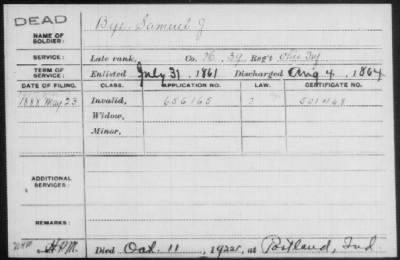 DEAD
NAME OF SOLDIER: Bye, Samuel J
SERVICE: Late rank, Co. H, 39 Reg't Ohio Inf
TERM OF SERVICE: Enlisted July 31, 1861 Discharged Aug 4, 1864
DATE OF FILING. CLASS. APPLICATION NO. LAW. CERTIFICATE NO.
1888 May 23 Invalid, 656165
Widow,
Minor,
ADDITIONAL SERVICES:
REMARKS:
Died Oct. 11, 1922, at Portland, Ind.